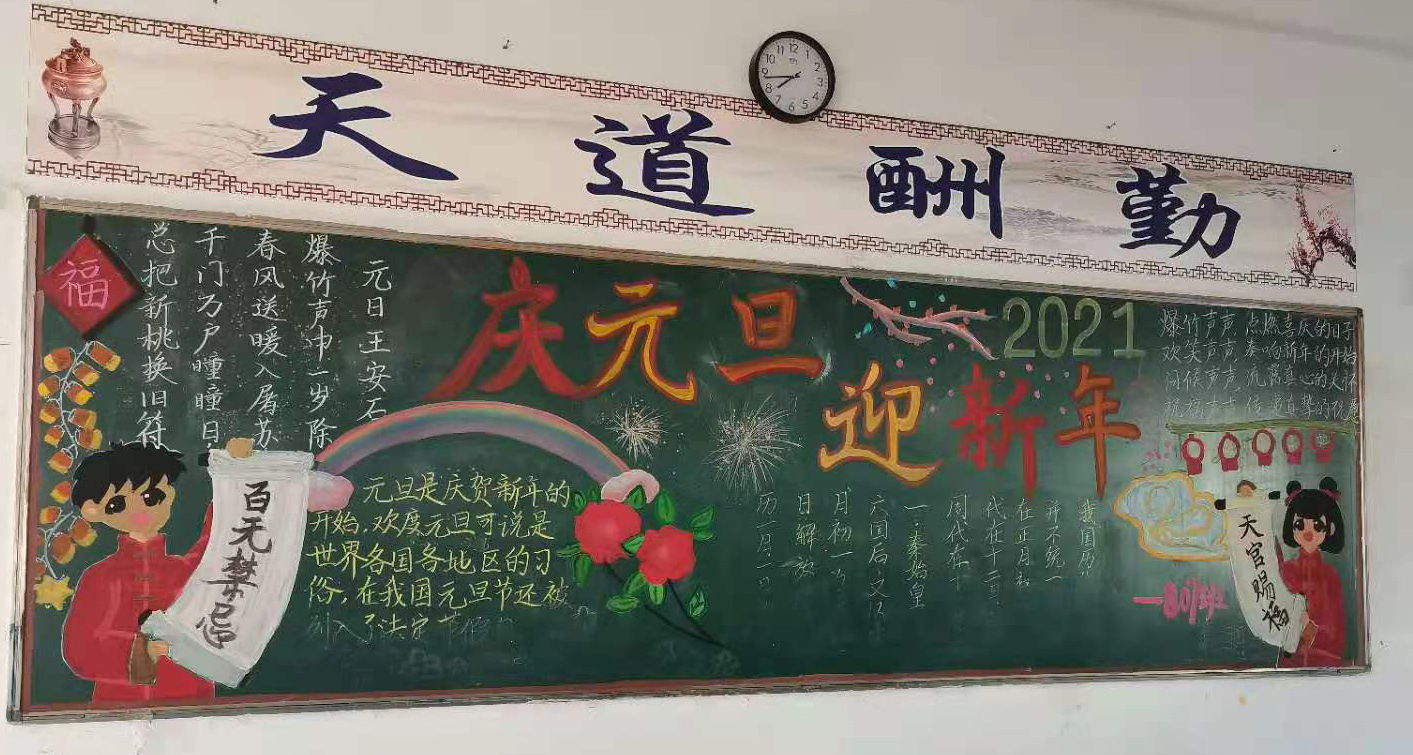 天道酬勤
福
元日王安石
爆竹声中一岁除
春风送暖入屠苏
千门万户曈曈日
总把新桃换旧符
庆元旦
2021
迎新年
爆竹声声,点燃喜庆的日子
欢笑声声,奏响新年的开始
问候声声,流露真心的关怀
祝福声声,传递真挚的祝愿
百无禁忌
元旦是庆贺新年的
开始,欢度元旦可说是
世界各国各地区的习
俗,在我国元旦节还被
列入了法定节假日
我国历
并不统一
在正月初
代在十二月
周代在十
一,秦始皇
六国后又以十
月初一为
历一月一日
天官赐福
801班
12
1
2
3
4
5
6
7
8
9
10
11